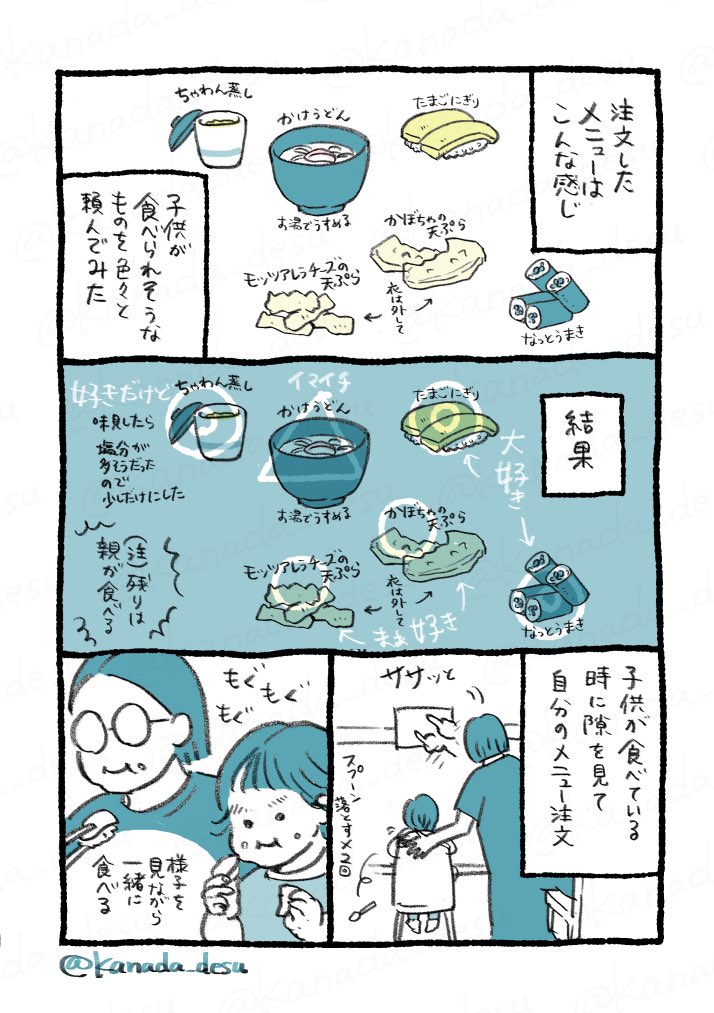 注文した
メニューは
こんな感じ
ちゃわん蒸し
かけうどん
お湯でうすめる
たまごにぎり
かぼちゃの
天ぷら
モッツァレラチーズの
天ぷら
衣は外して
なっとうまき
子供が
食べられそうな
ものを色々と
頼んでみた
結果
大好き
たまごにぎり
なっとうまき
イマイチ
かけうどん
お湯でうすめる
かぼちゃの
天ぷら
モッツァレラチーズの
天ぷら
衣は外して
まぁ好き
好きだけど
ちゃわん蒸し
味見したら
塩分が
多そうだった
ので
少しだけにした
(注)残りは
親が食べる
子供が食べている
時に隙を見て
自分のメニュー注文
ササッと
スプーン
落とす×2回
もぐ
もぐ
もぐ
様子を
見ながら
一緒に
食べる
@kanada_desu